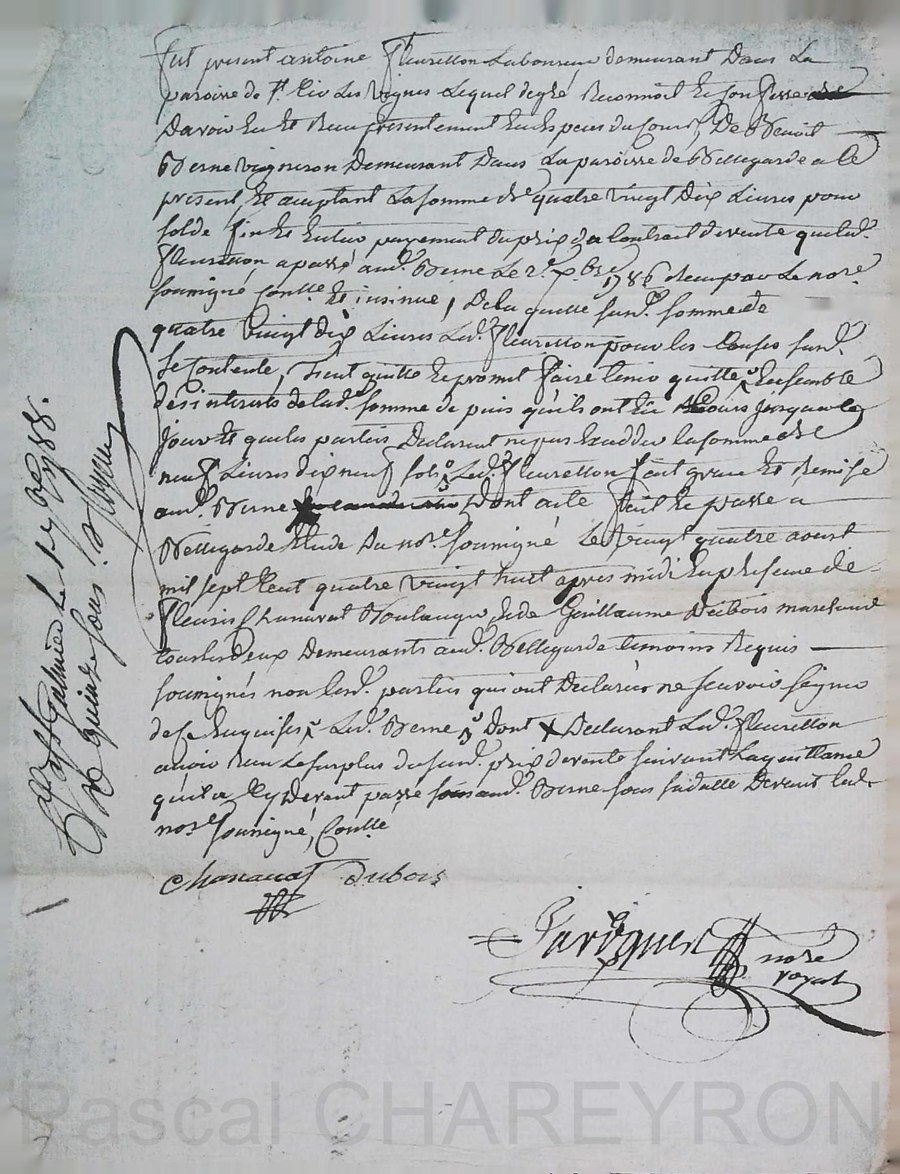 fut present antoine fleuretton Laboureur demeurant Dans La
paroisse de St. Cir Les vignes Lequel degré Reconnoit et confesse
Davoir Eu et Reçu presentement En especes du Cours, De Benoit
Berne vigneron Demeurant Dans La paroisse de Bellegarde a ce
present et aceptant La somme de quatre vingt Dix Livres pour
solde fin et Entier payement du prix du Contract de vente que led.
fleuretton a passé aud. Berne Le 2e xbre 1786 reçu par Le nore
soussigné Contlé et insinué, De la quelle susd. somme de
quatre vingt Dix Livres Led. fleuretton pour les Causes susd.
se Contente, tient quitte et promet faire tenir quitte Ensemble
des interets de lad. somme depuis qu'ils ont Eu Cours jusqu'au
jour et que les parties Declarent
neuf Livres dix neuf sols, Led. fleuretton fait grace et Remise
aud. Berne Dont acte fait et passé a
Bellegarde Etude du nore soussigné Le vingt quatre aoust
mil sept Cent quatre vingt huit apres midi En presence de
fleuris Chanavat Boulanger, et de Guillaume Dubois marchand
tous les deux Demeurants aud. Bellegarde temoins Requis
soussignés non lesd. parties qui ont Declarées ne scavoir signer
de ce Enquises, Led. Berne Dont Declarant Led. fleuretton
avoir Reçu Le surplus du susd. prix de vente suivant La quittance
qu'il a Cy Devant passé aud. Berne sous sa datte Devant led.
nore soussigné, Contlé
Chanavat Dubois
nore
royal
a St Galmier Le 1788.
Reçu quinze sous.
Pascal CHAREYRON